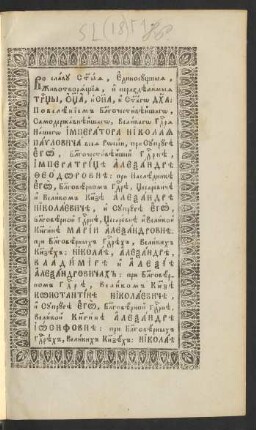 Во славу Ст҃ыѧ, Єдиносꙋщныѧ,
Животворѧщїѧ, и нераздѣлимыѧ
ТРЦ҃Ы, ОЦ҃А, и СН҃А, и Ст҃агѡ ДХ҃А:
Повелѣнїемъ Благочестивѣйшагѡ,
Самодержавнѣйшагѡ, Великагѡ Гдⷭ҇рѧ
Нашегѡ ІМПЕРАТОРА НІКОЛАѦ
ПАѴЛОВИЧА всеѧ Рѡссїи, при Сꙋпрꙋгѣ
ЄГѠ, Благочестивѣйшей Гдⷭ҇рнѣ,
ІМПЕРАТРИЦѢ АЛЕѮАНДРѢ
ѲЕОДѠРОВНѢ: при Наслѣдникѣ
ЄГѠ, Благовѣрномъ Гдⷭ҇рѣ, Цесаревичѣ
и Великомъ Кнѧзѣ АЛЕѮАНДРѢ
НІКОЛАЕВИЧѢ, и Сꙋпрꙋгѣ ЄГѠ,
Благовѣрной Гдⷭ҇рнѣ, Цесаревнѣ и Великой
Кнѧгинѣ МАРІИ АЛЕѮАНДРОВНѢ:
при Благовѣрныхъ Гдⷭ҇рѣхъ, Великихъ
Кнѧзехъ: НІКОЛАѢ, АЛЕѮАНДРѢ,
ВЛАДИМІРѢ и АЛЕѮІѢ
АЛЕѮАНДРОВИЧАХЪ: при Благовѣр-
номъ Гдⷭ҇рѣ, Великомъ Кнѧзѣ
КѠНСТАНТІНѢ НІКОЛАЕВИЧѢ,
и Сꙋпрꙋгѣ ЄГѠ, Благовѣрной Гдⷭ҇рнѣ,
Великой Кнѧгинѣ АЛЕѮАНДРѢ
ІѠСИФОВНѢ: при Благовѣрныхъ
Гдⷭ҇рѣхъ, Великихъ Кнѧзехъ: НІКОЛАѢ